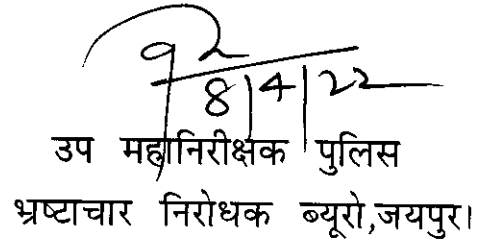 8/4/22
उप महानिरीक्षक पुलिस
भ्रष्टाचार निरोधक ब्यूरो,जयपुर।